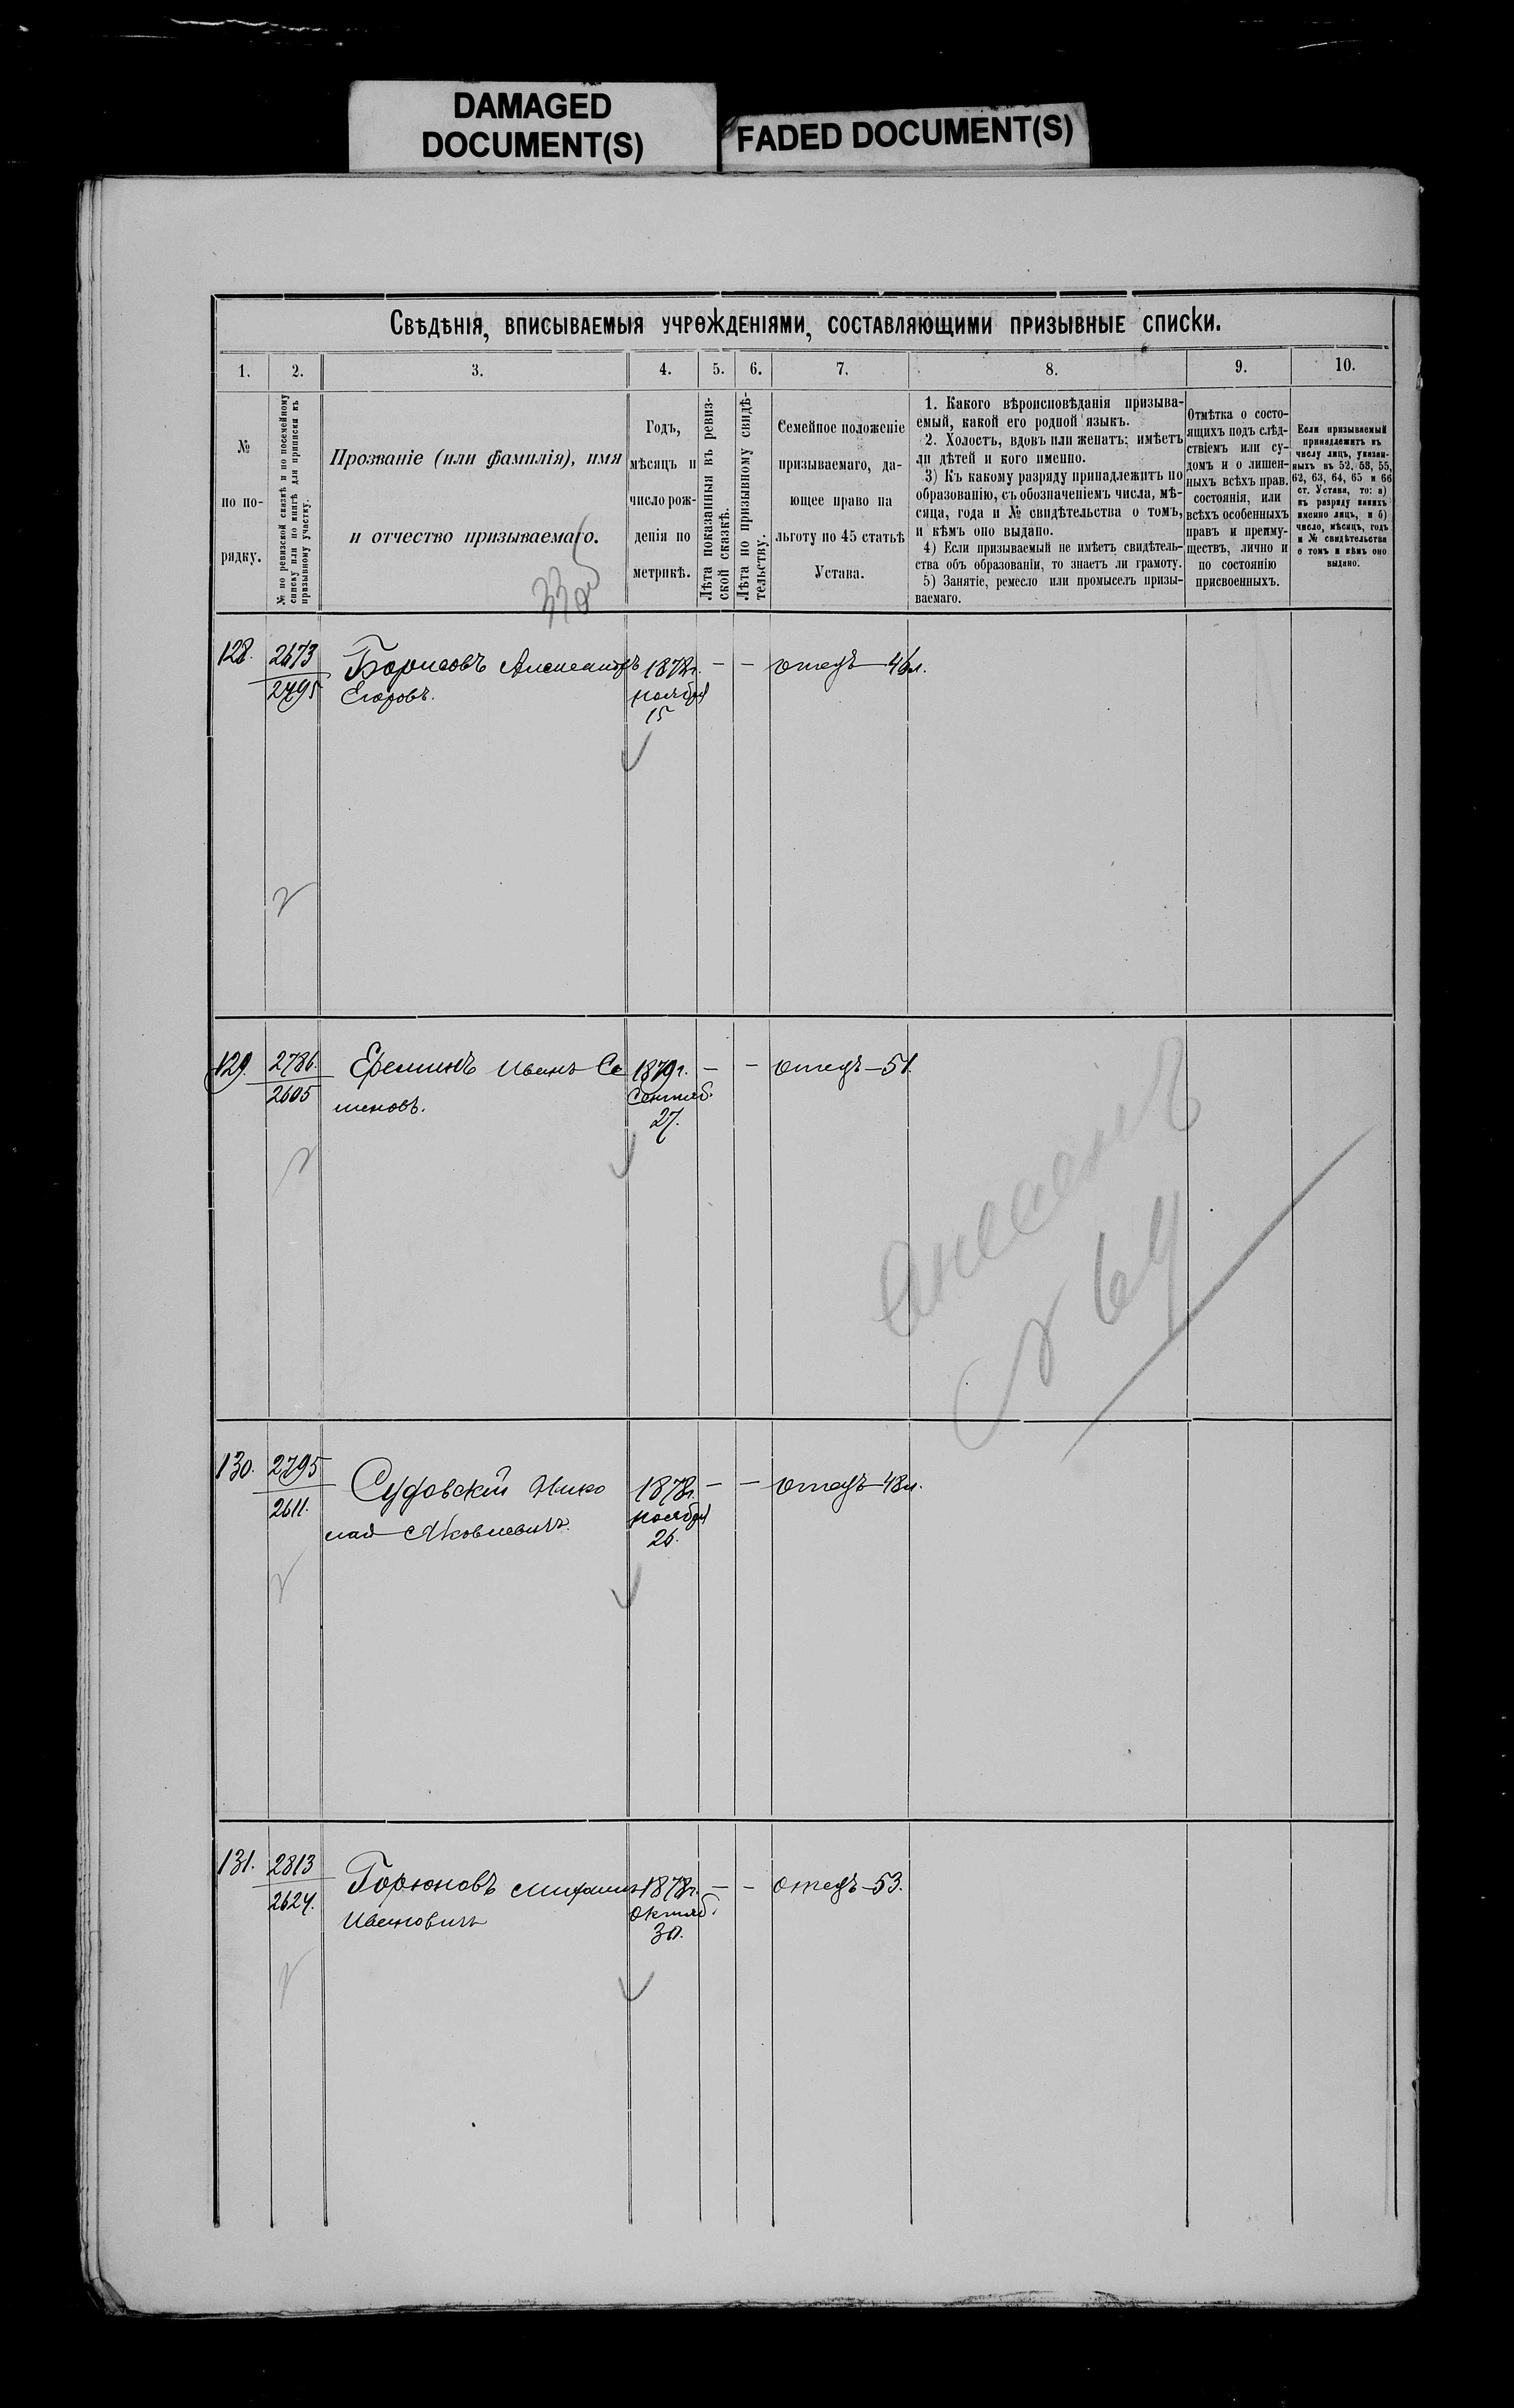 DAMAGED
DOCUMENT(S)
FADED DOCUMENT(S)
Свѣдѣнія, вписываемыя учрежденіями, составляющими призывные списки.
1. 2. 3. 4. 5. 6. 7. 8. 9. 10.
№
по по-
рядку.
№ по ревизской сказкѣ и по посемейному
списку или по книгѣ для приписки къ
призывному участку.
Прозваніе (или фамилія), имя
и отчество призываемаго.
Годъ,
мѣсяцъ и
число рож-
денія по
метрикѣ.
Лѣта показанныя въ ревиз-
ской сказкѣ.
Лѣта по призывному свидѣ-
тельству.
Семейное положеніе
призываемаго, да-
ющее право на
льготу по 45 статьѣ
Устава.
1. Какого вѣроисповѣданія призыва-
емый, какой его родной языкъ.
2. Холостъ, вдовъ или женатъ; имѣетъ
ли дѣтей и кого именно.
3) Къ какому разряду принадлежитъ по
образованію, съ обозначеніемъ числа, мѣ-
сяца, года и № свидѣтельства о томъ,
и кѣмъ оно выдано.
4) Если призываемый не имѣетъ свидѣтель-
ства объ образованіи, то знаетъ ли грамоту.
5) Занятіе, ремесло или промыселъ призы-
ваемаго.
Отмѣтка о состо-
ящихъ подъ слѣд-
ствіемъ или су-
домъ и о лишен-
ныхъ всѣхъ прав.
состоянія, или
всѣхъ особенныхъ
правъ и преиму-
ществъ, лично и
по состоянію
присвоенныхъ.
Если призываемый
принадлежитъ къ
числу лицъ, указан-
ныхъ въ 52, 53, 55,
62, 63, 64, 65 и 66
ст. Устава, то: а)
къ разряду какихъ
именно лицъ, и б)
число, мѣсяцъ, годъ
и № свидѣтельства
о томъ и кѣмъ оно
выдано.
128. 2673 Борисовъ Александръ 1878г. — — отецъ—46л.
2495 Егоровъ. ноября
15
129. 2786. Ереминъ Иванъ Се 1879г. — — отецъ—51.
2605 меновъ. Сентяб.
27.
130. 2795 Судовскій Нико 1878г. — — отецъ—48л.
2611. лай Яковлевичъ. ноября
26.
131. 2813 Горюновъ Михаилъ 1878г. — — отецъ—53.
2624. Ивановичъ Октяб.
30.
№ 64